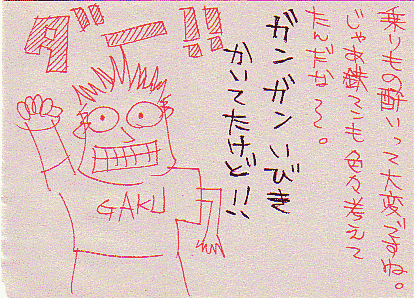 乗りもの酔いって大変ですね。
じゃあ も色々考えて
たんだな〜。
ガンガンいびき
かいてたけど!!
ダー!!
GAKU